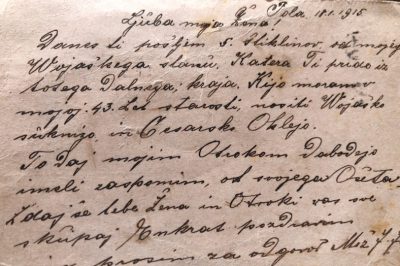 Ljuba moja Žena! Pola 18.1.1915
Danes ti pošljem 5. Štiklinov, od mojega
Wojaškega stanu, Katera Ti prido iz
tosega Dalnega, kraja, Kijo moram
mojoj: 43. Let starosti, nositi Wojaško
suknijo in Cesarsko Oblejo.
To daj mojim Otrokom Dabodejo
imeli zaspomin, od svojega Očeta,
Zdaj še tebe Žena in Otroki vas sve
skupaj Enkrat pozdravim
in prosim za odgovor